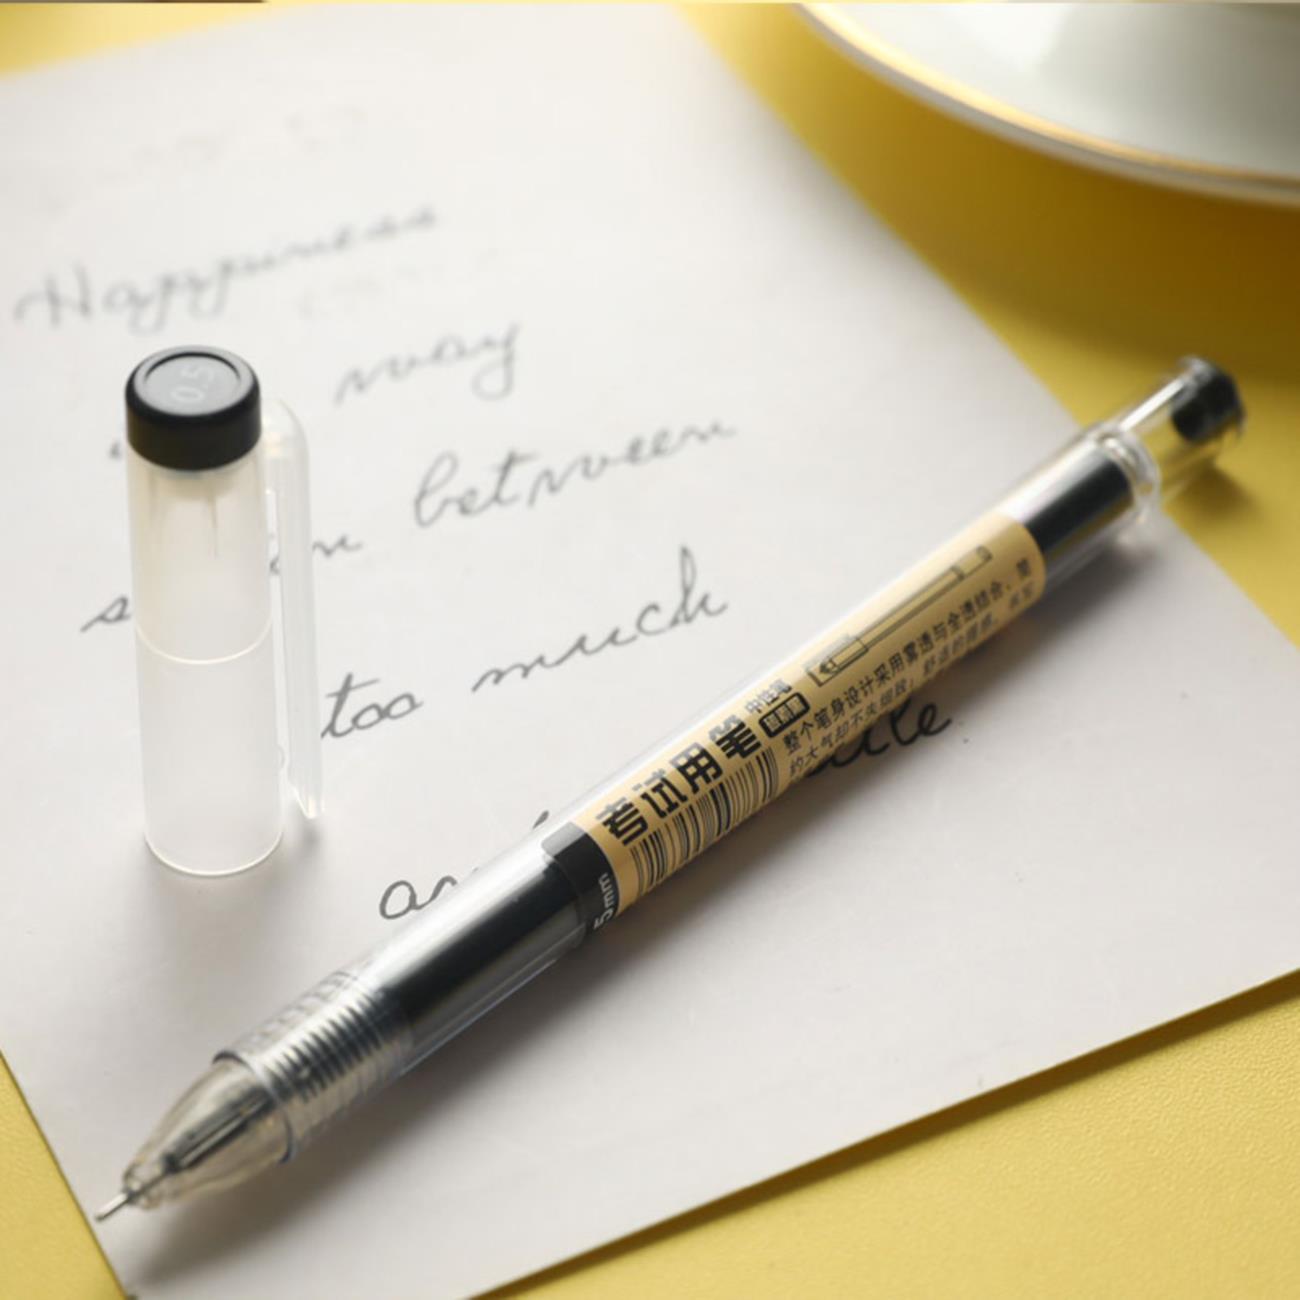 Happiness
way
between
too much
0.5
考试用笔
中性笔
整个笔身设计采用雾透与全透结合，简
约大气却不失细致！舒适的握感，
5mm